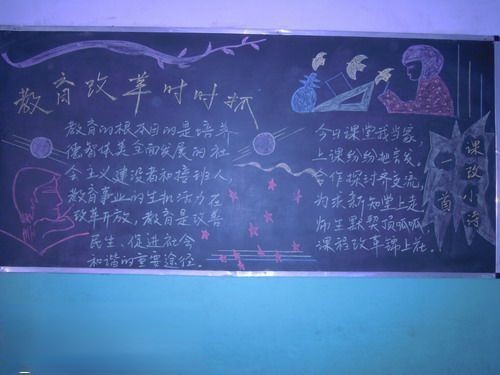 教育改革时时抓
教育的根本目的是培养
德智体美全面发展的社
会主义建设者和接班人,
教育事业的生机活力在
改革开放、教育是改善
民生、促进社会
和谐的重要途径。
课改小诗
一首
今日课堂我当家,
上课纷纷把言发,
合作探讨齐交流,
为求新知堂上走,
师生默契顶呱呱,
课程改革锦上花。